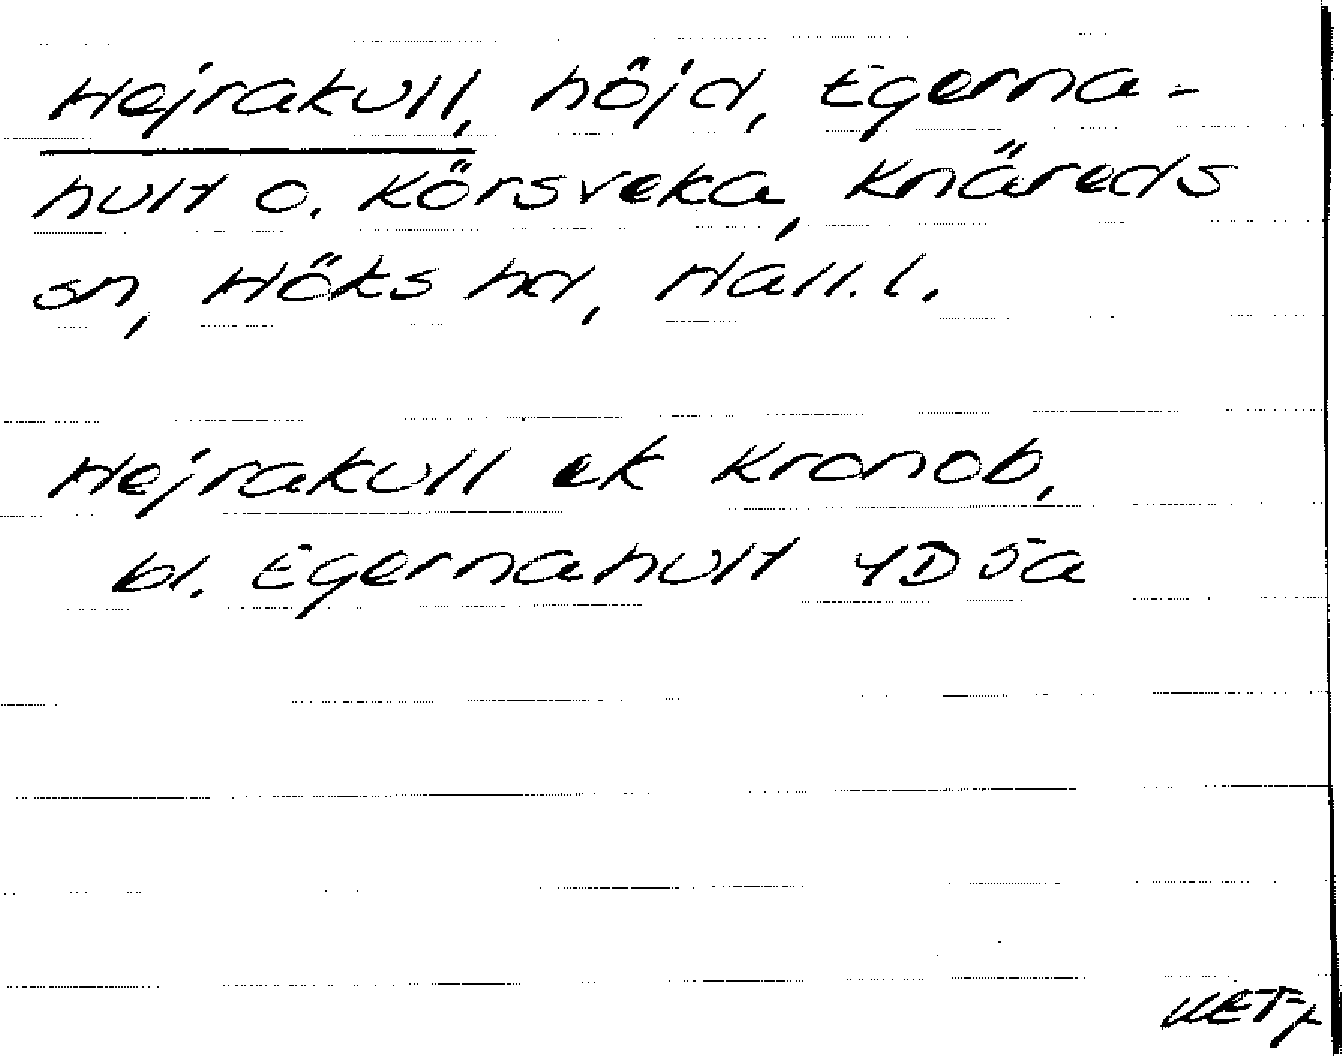 Hejrakull, höjd, Egerna-
hult o. Körsveka, Knäreds
sn, Höks hd, Hall. l.
Hejrakull ek Kronob,
bl. Egernahult 4D 5a